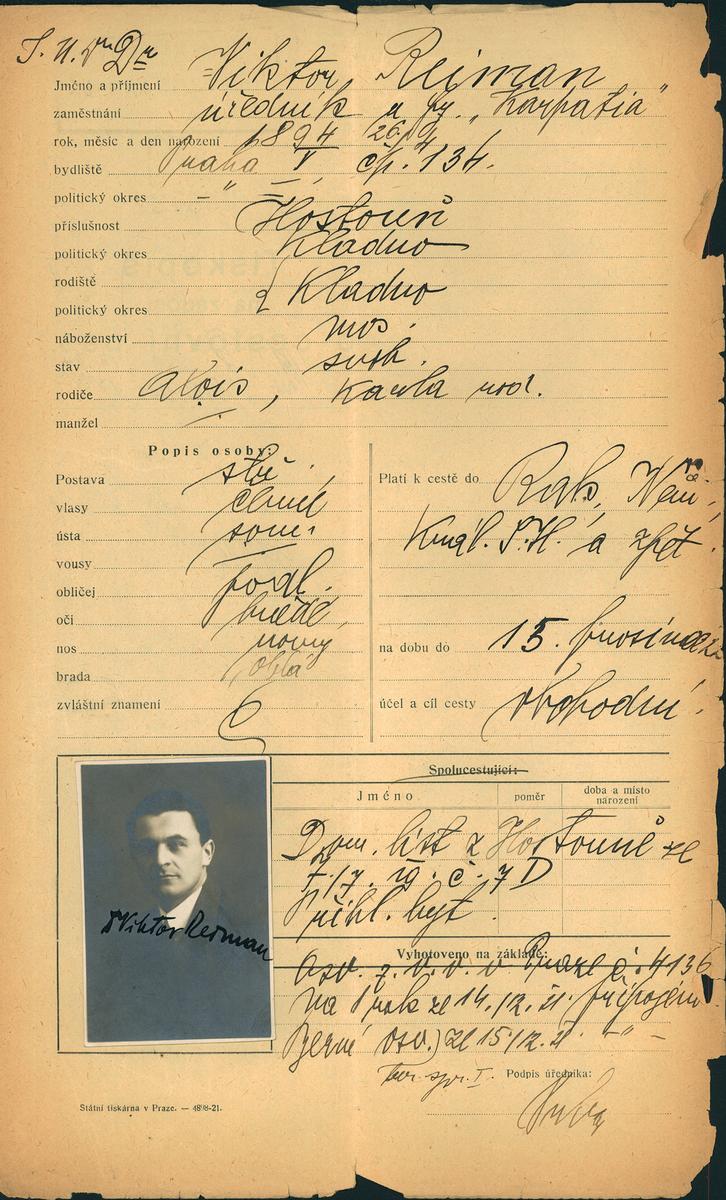 Dr
Jméno a příjmení Viktor Reiman
zaměstnání úředník u fy. „Karpatia"
rok, měsíc a den narození 1894 26/9
bydliště Praha V, čp. 134.
politický okres – " –
příslušnost Hostouň
politický okres Kladno
rodiště
politický okres Kladno
náboženství mos.
stav svob.
rodiče Alois, Karla roz.
manžel
Popis osoby:
Postava stř.
vlasy
ústa soum.
vousy –
obličej podl.
oči hnědé
nos
brada oblá
zvláštní znamení
Platí k cestě do Rak, Něm,
S.H. a zpět.
na dobu do 15. prosince
účel a cíl cesty obchodní.
Spolucestující:
Jméno poměr doba a místo narození
Dom. list z Hostouně ze
č. 7 D
přihl. byt.
Vyhotoveno na základě:
Osv. z. v. v. v Praze č. 4136
na rok ze 14./12. 21. připojeno
Berní osv. ze 15/12. 21. – " –
Podpis úředníka:
Dr Viktor Reiman
Státní tiskárna v Praze. — 4898-21.